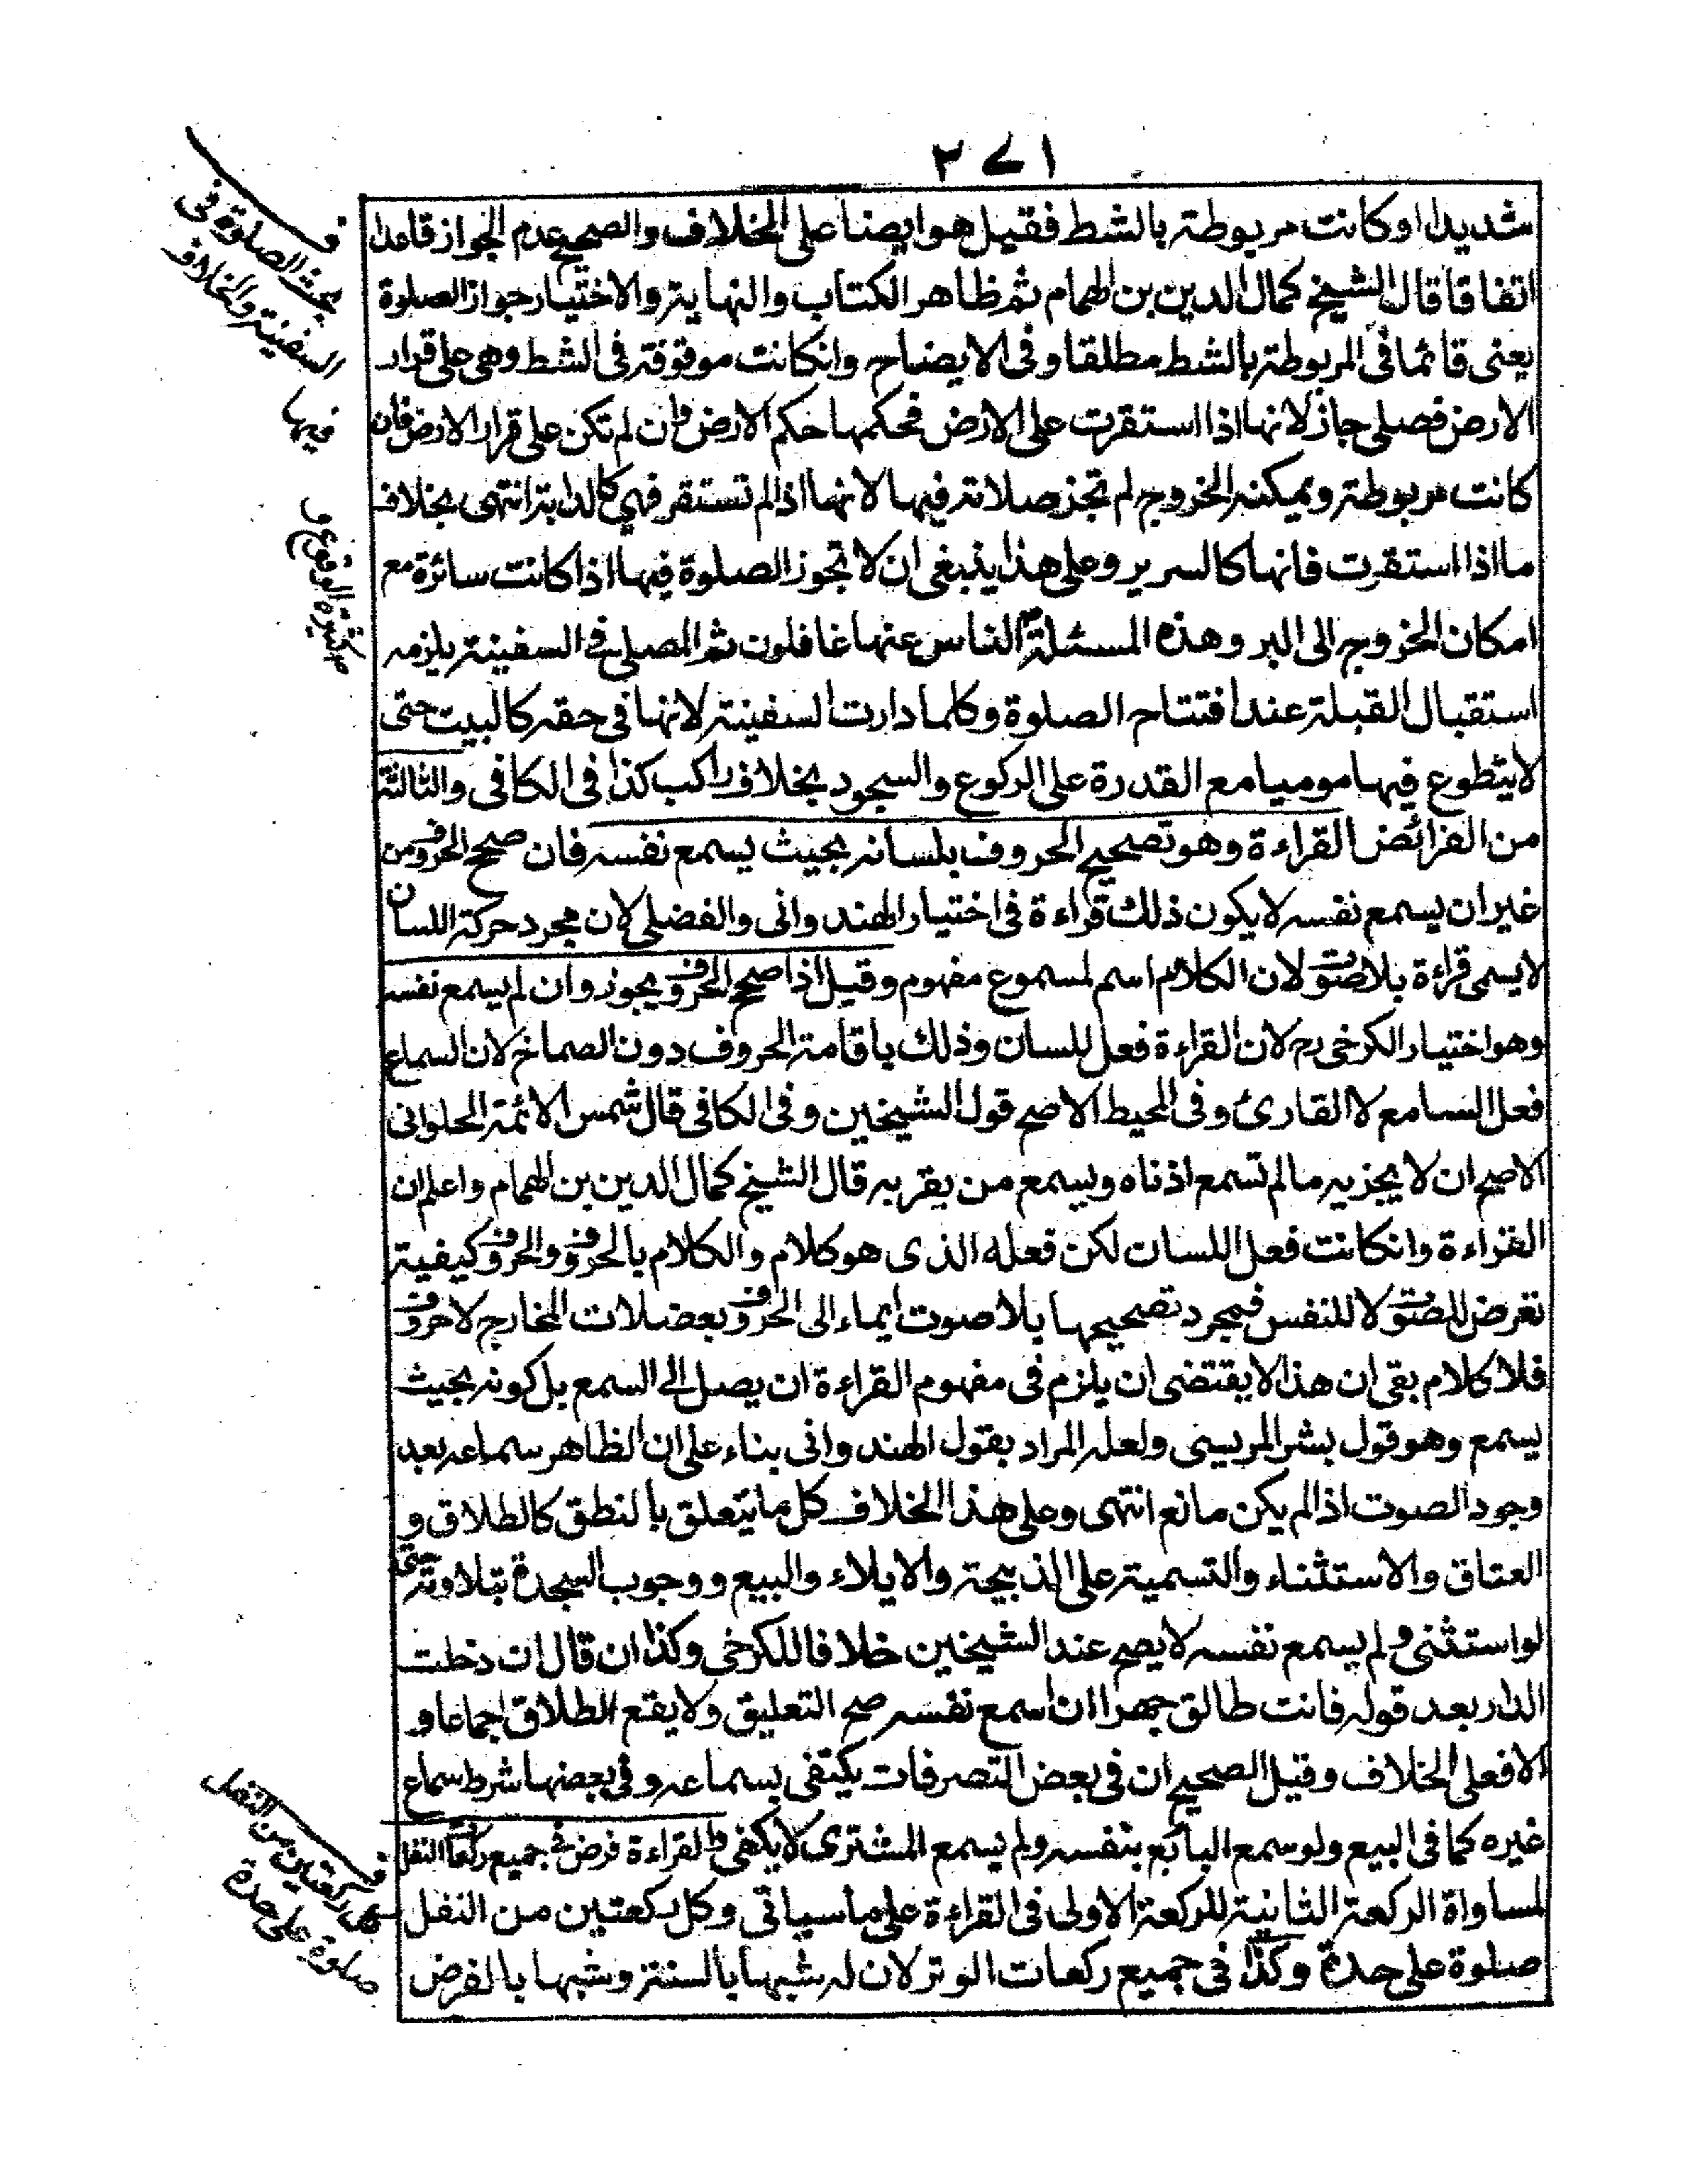 ٢٧١
شديدا او كانت مربوطة بالشط فقيل هو ايضا على الخلاف والصحيح عدم الجواز قاعدا
اتفاقا قال الشيخ كمال الدين بن الهمام ثم ظاهر الكتاب والنهاية والاختيار جواز الصلوة
يعنى قائما فى المربوطة بالشط مطلقا وفى الايضاح وانكانت موقوفة فى الشط وهى على قرار
الارض فصلى جاز لانها اذا استقرت على الارض فحكمها حكم الارض وان لم تكن على قرار الارض فان
كانت مربوطة ويمكنه الخروج لم تجز صلاته فيها لانها اذا لم تستقر فهى كالدابة انتهى بخلاف
ما اذا استقرت فانها كالسرير وعلى هذا ينبغى ان لا تجوز الصلوة فيها اذا كانت سائرة مع
امكان الخروج الى البر وهذه المسئلة الناس عنها غافلون ثم المصلى فى السفينة يلزمه
استقبال القبلة عند افتتاح الصلوة وكلما دارت السفينة لانها فى حقه كالبيت حتى
لا يتطوع فيها موميا مع القدرة على الركوع والسجود بخلاف راكب كذا فى الكافى والثالثة
من الفرائض القراءة وهو تصحيح الحروف بلسانه بحيث يسمع نفسه فان صحح الحروف من
غير ان يسمع نفسه لا يكون ذلك قراءة فى اختيار الهندوانى والفضلى لان مجرد حركة اللسان
لا يسمى قراءة بلا صوت لان الكلام اسم لمسموع مفهوم وقيل اذا صحح الحروف يجوز وان لم يسمع نفسه
وهو اختيار الكرخى رح لان القراءة فعل للسان وذلك باقامة الحروف دون الصماخ لان السماع
فعل السامع لا القارئ وفى المحيط الاصح قول الشيخين وفى الكافى قال شمس الائمة الحلوانى
الاصح ان لا يجزيه ما لم تسمع اذناه ويسمع من يقربه قال الشيخ كمال الدين بن الهمام واعلم ان
القراءة وانكانت فعل اللسان لكن فعله الذى هو كلام والكلام بالحروف والحروف كيفية
تعرض للصوت لا للنفس فمجرد تصحيحها بلا صوت ايماء الى الحروف بعضلات المخارج لا حروف
فلا كلام بقى ان هذا لا يقتضى ان يلزم فى مفهوم القراءة ان يصل الى السمع بل كونه بحيث
يسمع وهو قول بشر المريسى ولعله المراد بقول الهندوانى بناء على ان الظاهر سماعه بعد
وجود الصوت اذا لم يكن مانع انتهى وعلى هذا الخلاف كل ما يتعلق بالنطق كالطلاق و
العتاق والاستثناء والتسمية على الذبيحة والايلاء والبيع ووجوب السجدة بتلاوته حتى
لو استثنى ولم يسمع نفسه لا يصح عند الشيخين خلافا للكرخى وكذا ان قال ان دخلت
الدار بعد قوله فانت طالق جهرا ان اسمع نفسه صح التعليق ولا يقع الطلاق اجماعا و
الا فعلى الخلاف وقيل الصحيح ان فى بعض التصرفات يكتفى بسماعه وفى بعضها شرط سماع
غيره كما فى البيع ولو سمع البائع بنفسه ولم يسمع المشترى لا يكفى والقراءة فرض فى جميع ركعات النفل
لمساواة الركعة الثانية للركعة الاولى فى القراءة على ما سياتى وكل ركعتين من النفل
صلوة على حدة وكذا فى جميع ركعات الوتر لان له شبها بالسنة وشبها بالفرض
ف
بحث الصلوة فى
السفينة والخلاف
فيها
كثيرة الوقوع
ف
ركعتين من النفل
صلوة على حدة